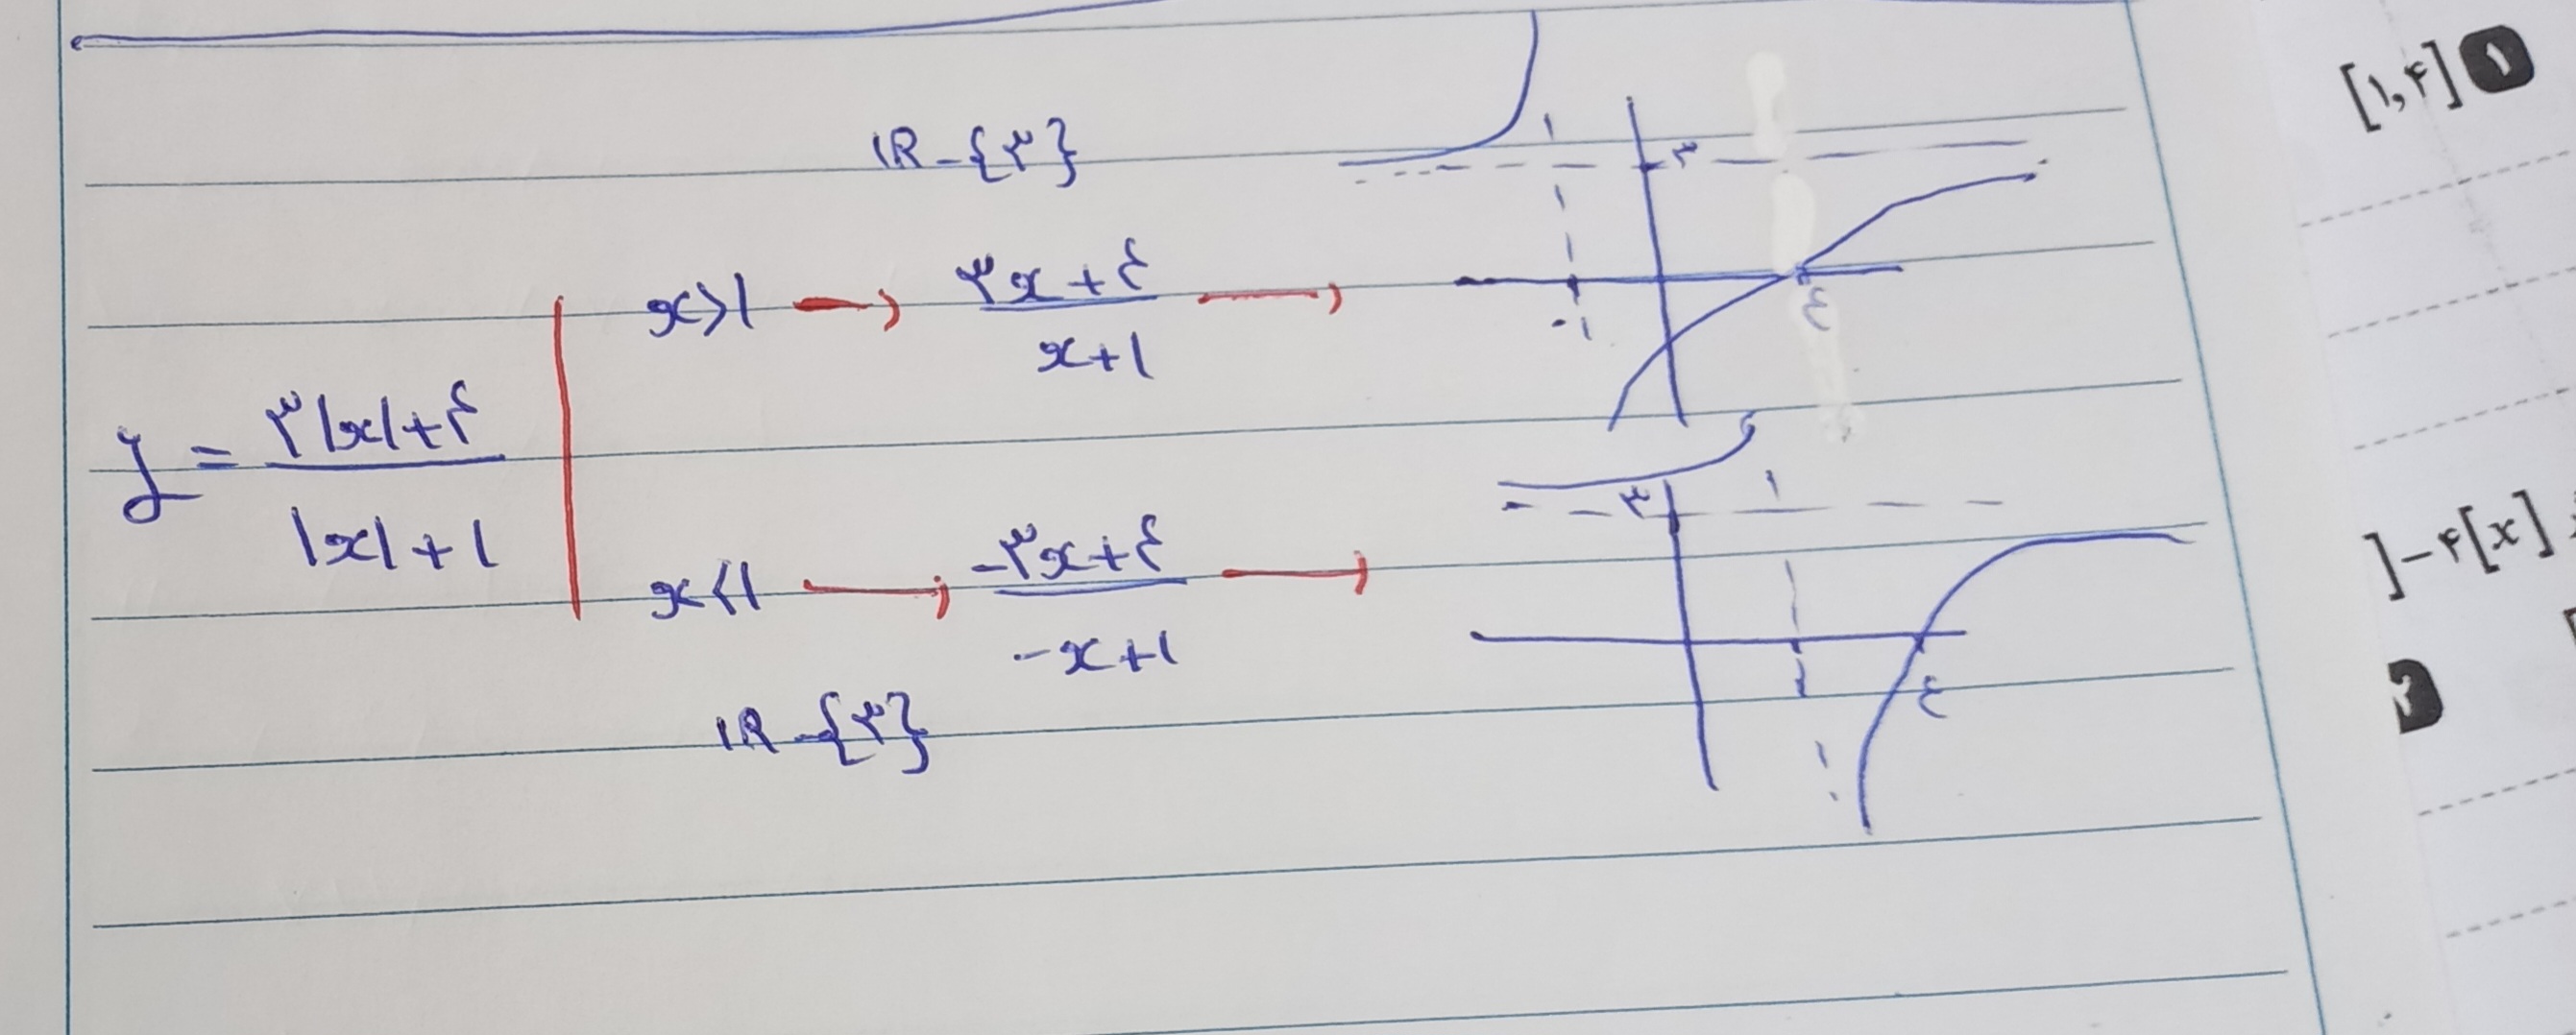 IR - {۳}
x>1 → (۳x+۴)/(x+1) →
y = (۳|x|+۴)/(|x|+1)
x<1 → (-۳x+۴)/(-x+1) →
IR - {۳}
۱
۳
-۱
۴
۳
۱
۴
[۱,۴] ۱
]-۴[x]